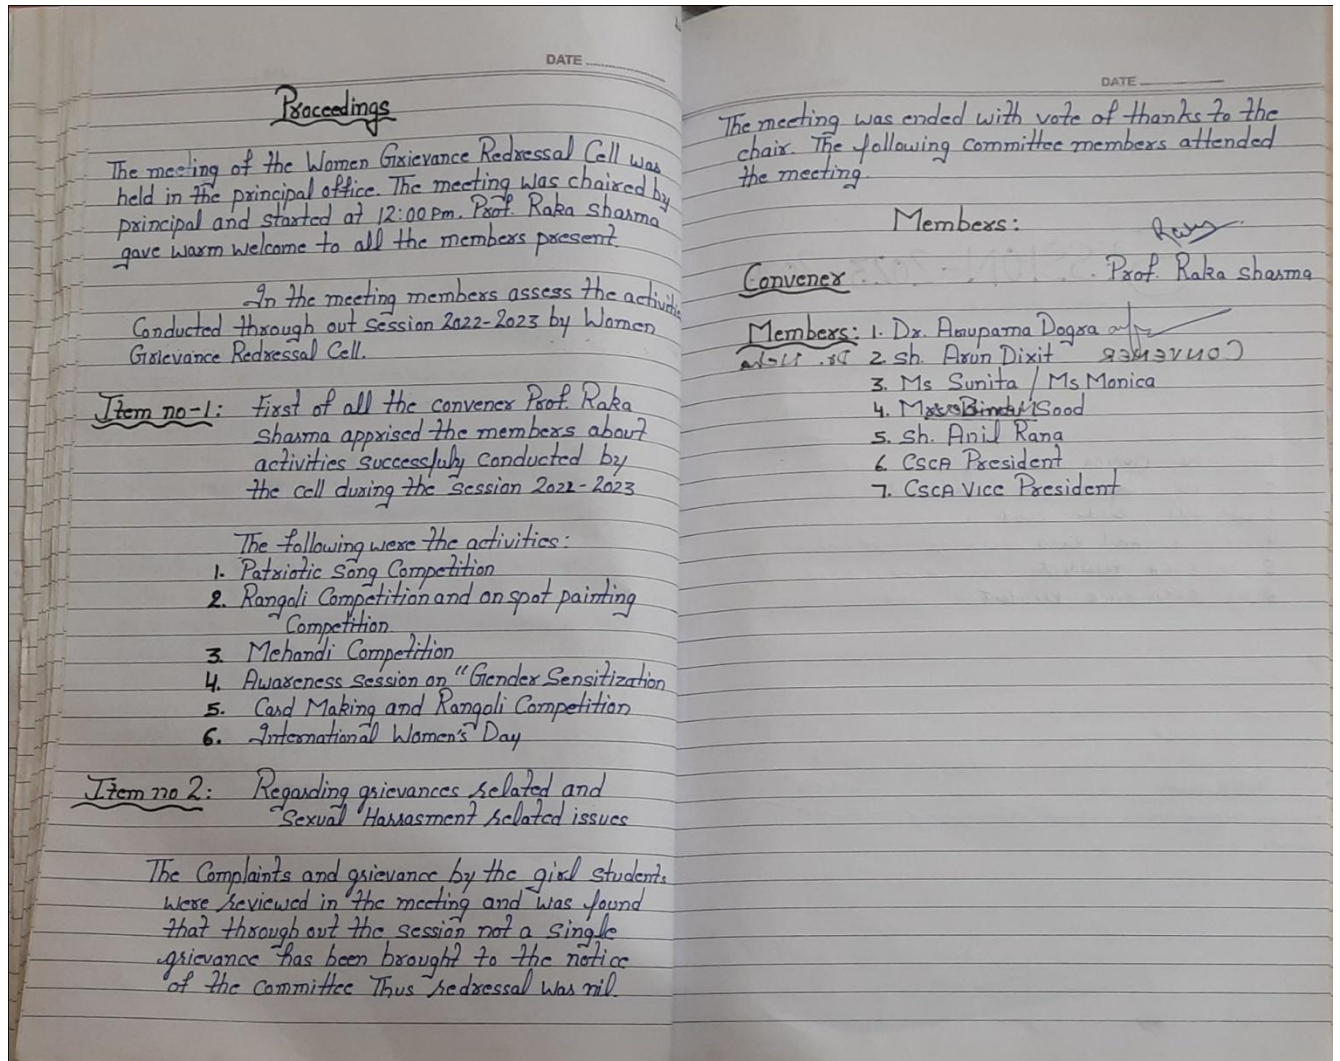 DATE
Proceedings
The meeting of the Women Grievance Redressal Cell was
held in the principal office. The meeting was chaired by
principal and started at 12:00 pm. Prof. Raka Sharma
gave warm welcome to all the members present.
In the meeting members assess the activities
Conducted through out Session 2022-2023 by Women
Grievance Redressal Cell.
Item no-1: First of all the convener Prof. Raka
Sharma apprised the members about
activities successfuly conducted by
the cell during the Session 2022-2023
The following were the activities:
1. Patriotic Song Competition
2. Rangoli Competition and on spot painting
Competition
3. Mehandi Competition
4. Awareness Session on "Gender Sensitization
5. Card Making and Rangoli Competition
6. International Women's Day
Item no 2: Regarding grievances related and
Sexual Harrasment related issues
The Complaints and grievance by the girl students
were reviewed in the meeting and was found
that through out the session not a single
grievance has been brought to the notice
of the committee Thus redressal was nil.
DATE
The meeting was ended with vote of thanks to the
chair. The following committee members attended
the meeting.
Members:
Convener Prof. Raka Sharma
Members: 1. Dr. Anupama Dogra
2. Sh. Arun Dixit
3. Ms Sunita / Ms Monica
4. Bindu Sood
5. Sh. Anil Rana
6. CSCA President
7. CSCA Vice President